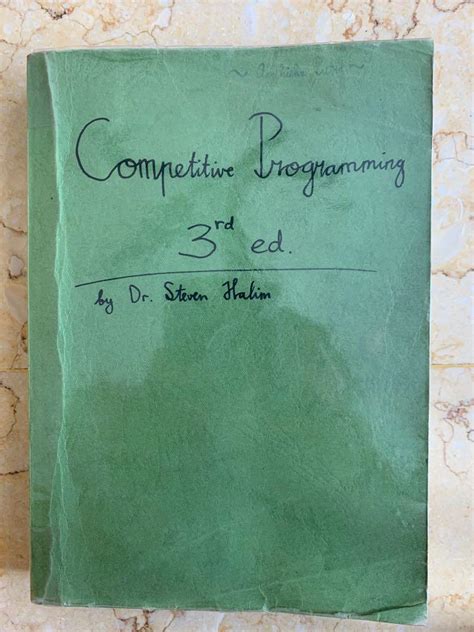 Competitive Programming
3rd ed.
by Dr. Steven Halim